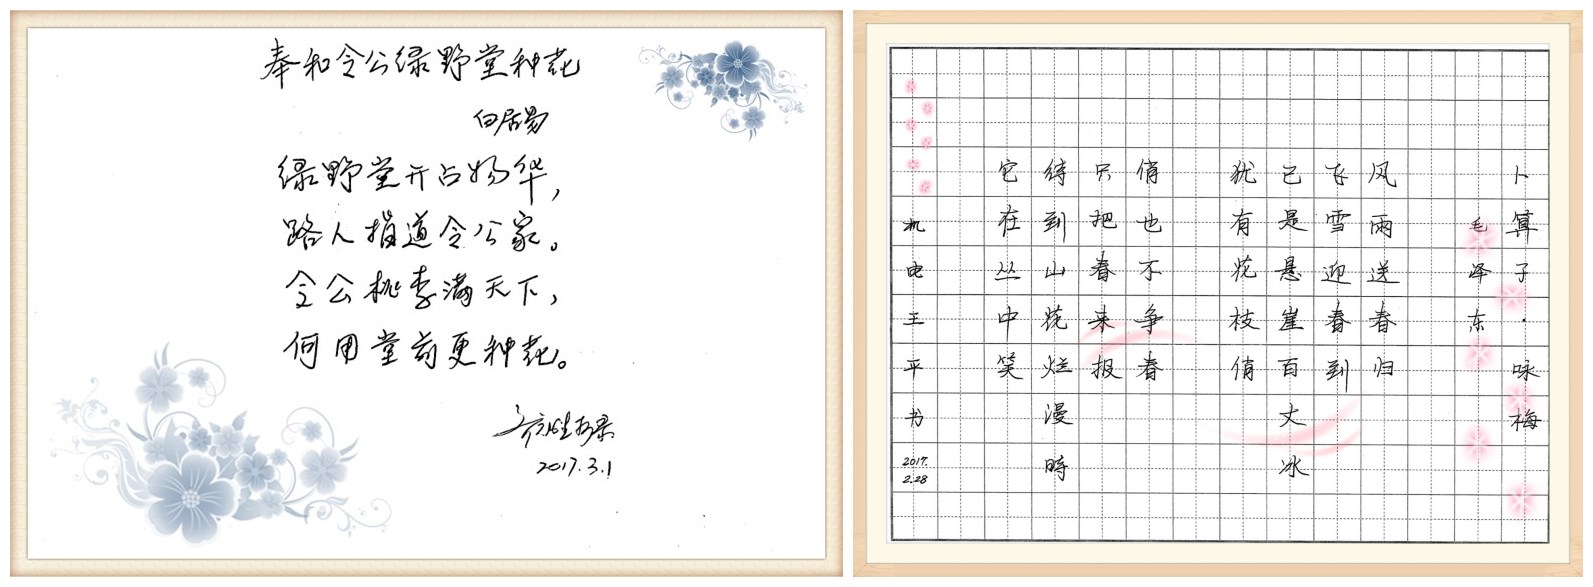 奉和令公绿野堂种花
白居易
绿野堂开占物华,
路人指道令公家。
令公桃李满天下,
何用堂前更种花。
2017.3.1
卜算子·咏梅
毛泽东
风雨送春归
飞雪迎春到
已是悬崖百丈冰
犹有花枝俏
俏也不争春
只把春来报
待到山花烂漫時
它在丛中笑
机电王平书
2017.
2.28